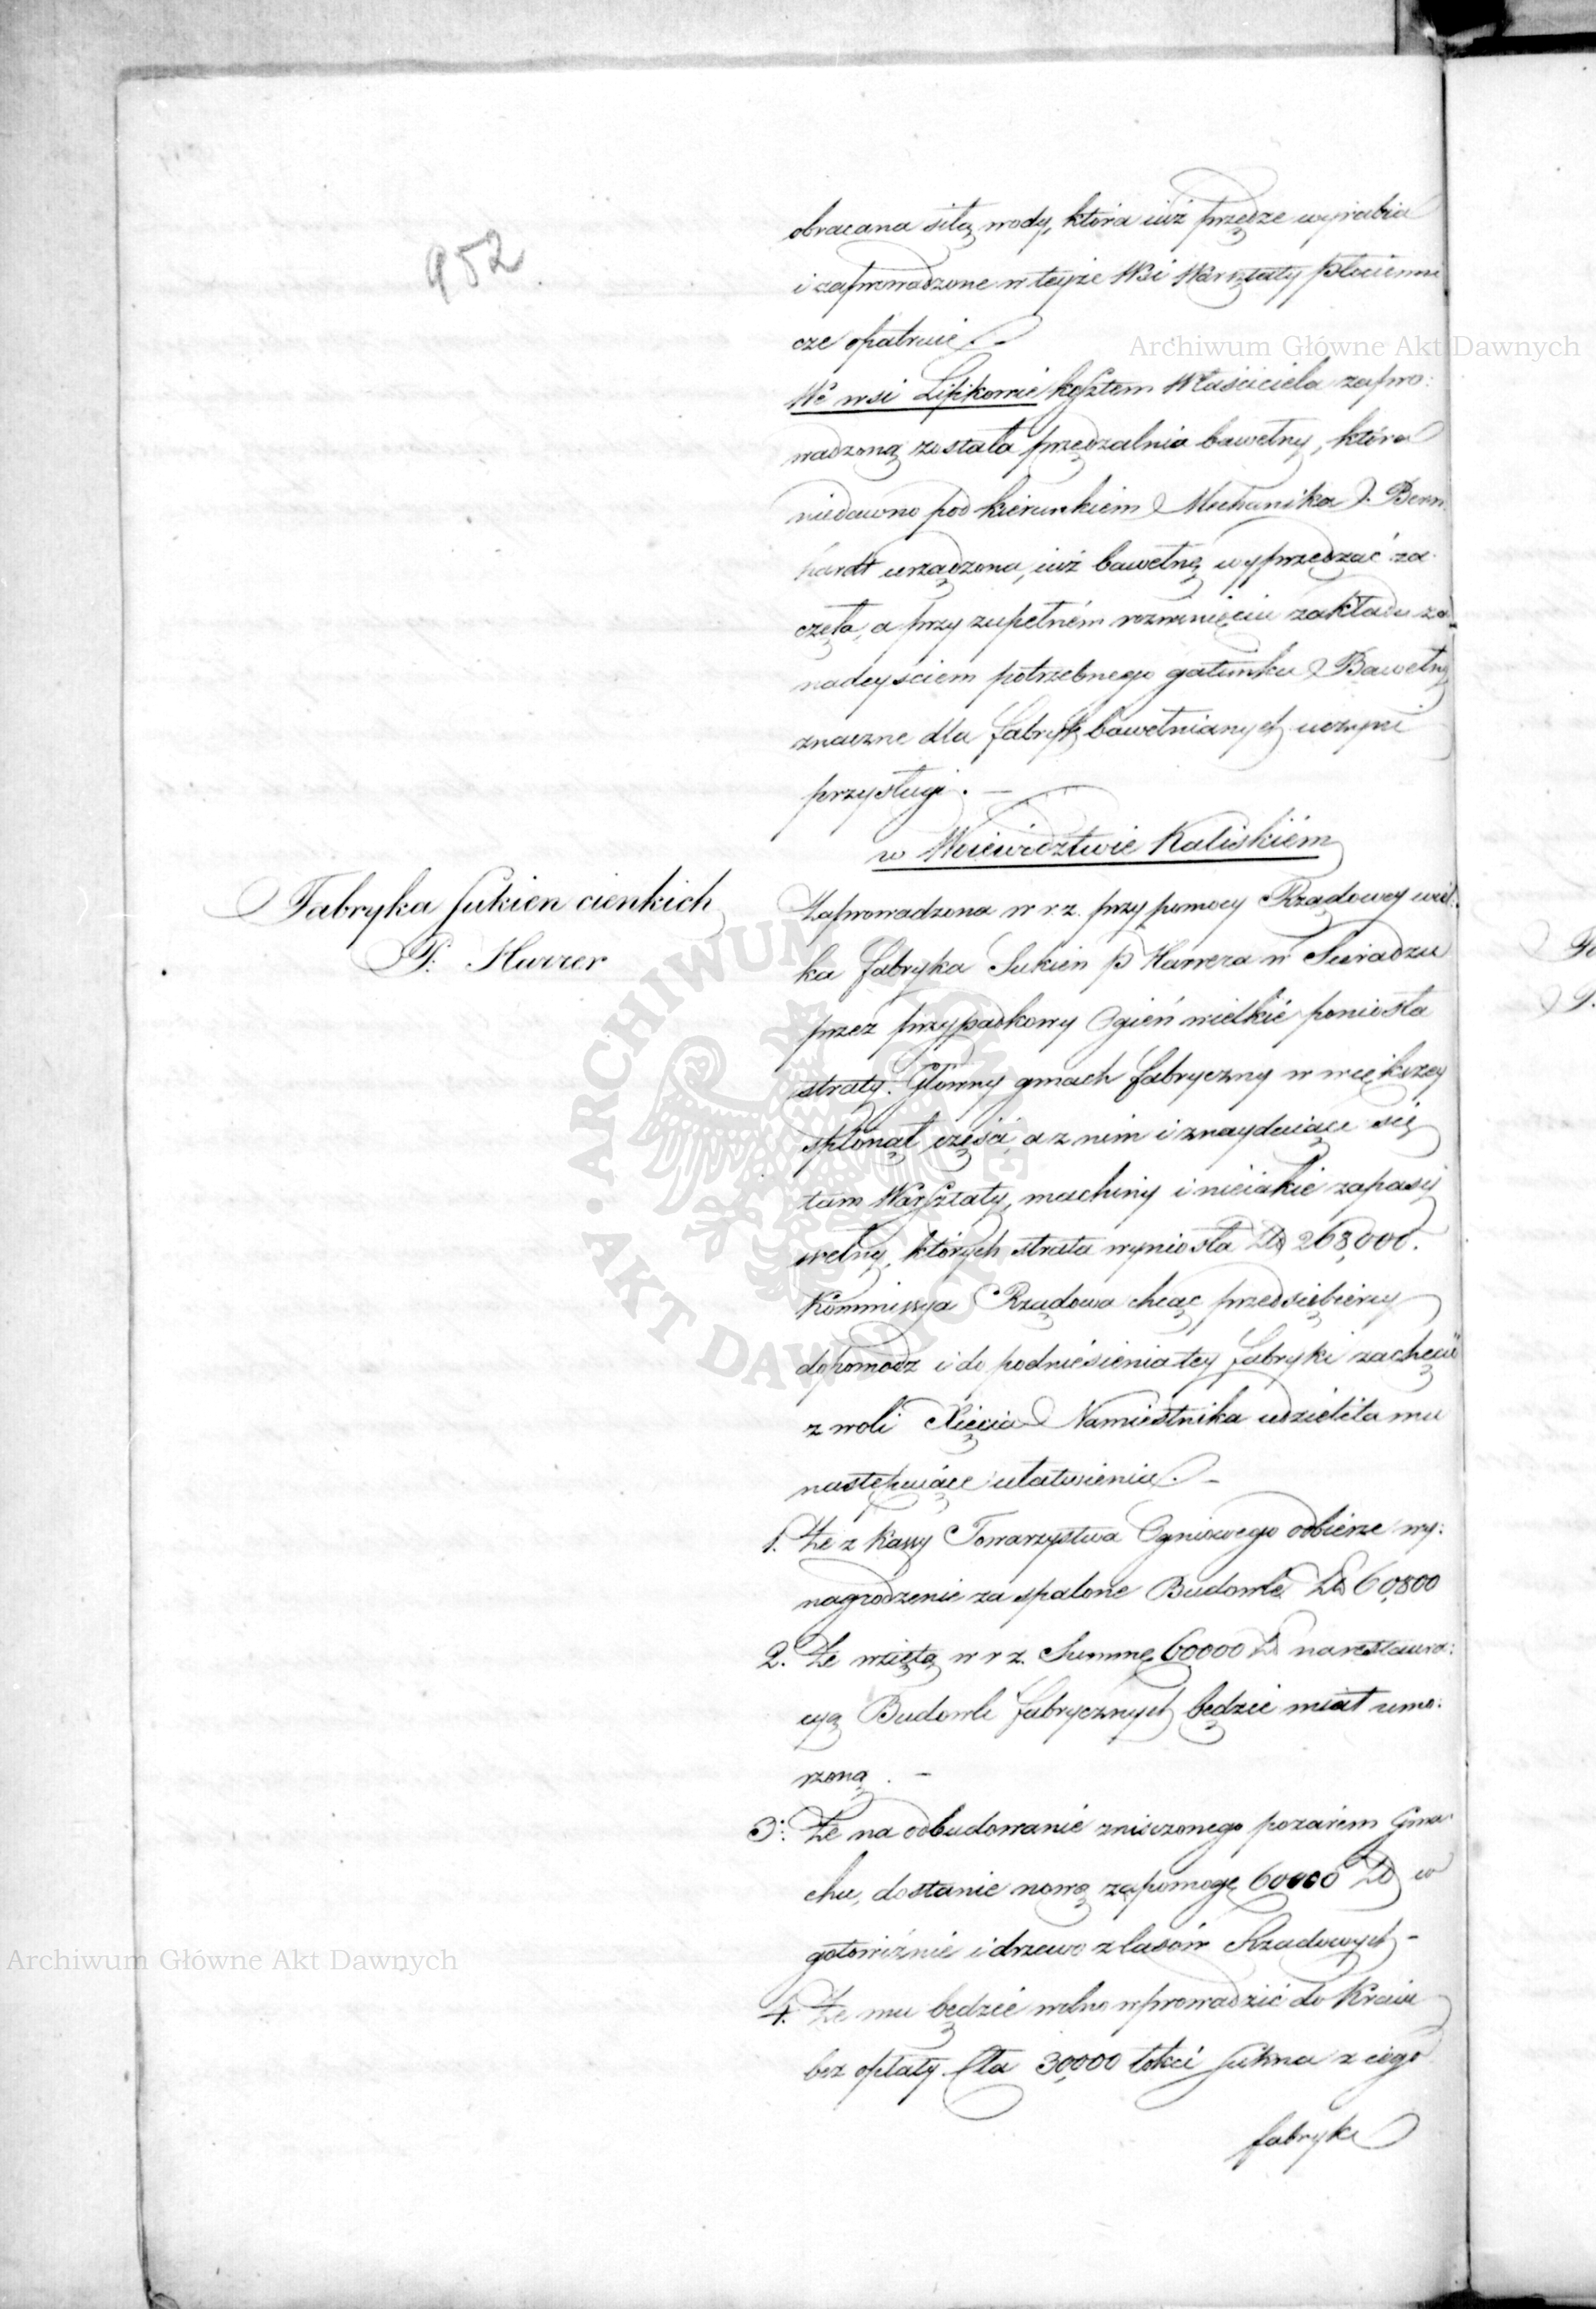 952
obracana siłą wody, która iuż przędze wyrabia
i zaprowadzone w teyże Wsi Warsztaty płócienni
cze opatruie. –
We wsi Lipkowie kosztem Właściciela zapro:
wadzoną została przędzalnia bawełny, która
niedawno pod kierunkiem Mechanika P. Bern
hardt urządzona, iuż bawełnę wyprzędzać za
częła, a przy zupełném rozwinięciu zakładu za
nadeyściem potrzebnego gatunku Bawełny
znaczne dla fabryk bawełnianych uczyni
przysługi. –
w Woiewództwie Kaliskiém
Fabryka Sukien cienkich
P. Harrer
Zaprowadzona w r. z. przy pomocy Rządowey wiel:
ka fabryka Sukien P Harrera w Sieradzu
przez przypadkowy Ogień wielkie poniosła
straty. Główny gmach fabryczny w większey
spłonął części, a z nim i znayduiące się
tam Warsztaty, machiny i nieiakie zapasy
wełny, których strata wyniosła Złp 268,000.
Kommissya Rządowa chcąc przedsiębiercy
dopomodz i do podniesienia tey fabryki zachęcić
z woli Xięcia Namiestnika udzieliła mu
następuiące ułatwienia. –
1. Że z Kassy Towarzystwa Ogniowego odbierze wy:
nagrodzenie za spalone Budowle Złp 60,800
2. Że wziętą w r z. Summę 60000 Zł na restaura:
cyą Budowli fabrycznych będzie miał umo:
rzoną. –
3. Że na odbudowanie zniszczonego pożarem Gma
chu, dostanie nową zapomogę 60000 Złp w
gotowiźnie i drzewo z lasów Rządowych –
4. Że mu będzie wolno wprowadzić do Kraiu
bez opłaty Cła 30,000 łokci Sukna z iego
fabryki
Archiwum Główne Akt Dawnych
Archiwum Główne Akt Dawnych
ARCHIWUM GŁÓWNE · AKT DAWNYCH ·